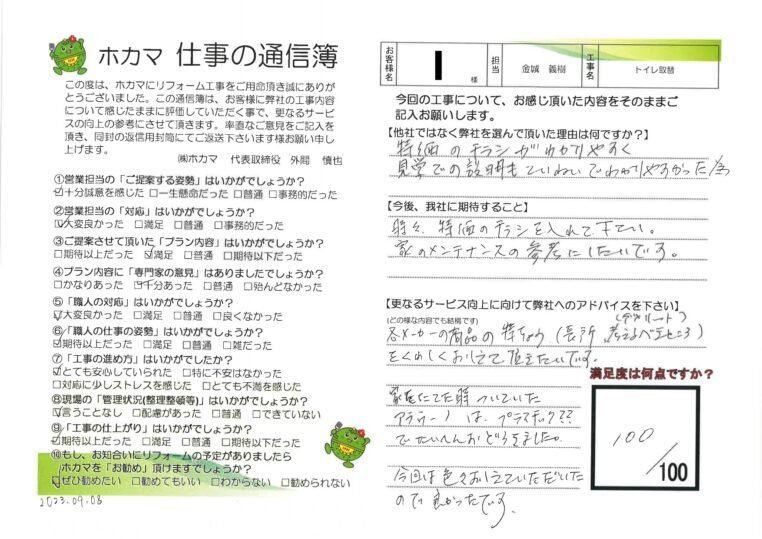 ホカマ 仕事の通信簿
この度は、ホカマにリフォーム工事をご用命頂き誠にありが
とうございました。この通信簿は、お客様に弊社の工事内容
について感じたままに評価していただく事で、更なるサービ
スの向上の参考にさせて頂きます。率直なご意見をご記入を
頂き、同封の返信用封筒にてご返送下さいます様お願い申し
上げます。
㈱ホカマ 代表取締役 外間 慎也
①営業担当の「ご提案する姿勢」はいかがでしょうか?
☑十分誠意を感じた □一生懸命だった □普通 □事務的だった
②営業担当の「対応」はいかがでしょうか?
☑大変良かった □満足 □普通 □事務的だった
③ご提案させて頂いた「プラン内容」はいかがでしょうか?
□期待以上だった ☑満足 □普通 □期待以下だった
④プラン内容に「専門家の意見」はありましたでしょうか?
□かなりあった ☑十分あった □普通 □殆んどなかった
⑤「職人の対応」はいかがでしょうか?
☑大変良かった □満足 □普通 □良くなかった
⑥「職人の仕事の姿勢」はいかがでしょうか?
☑期待以上だった □満足 □普通 □雑だった
⑦「工事の進め方」はいかがでしたか?
☑とても安心していられた □特に不安はなかった
□対応に少しストレスを感じた □とても不満を感じた
⑧現場の「管理状況(整理整頓等)」はいかがでしょうか?
☑言うことなし □配慮があった □普通 □できていない
⑨「工事の仕上がり」はいかがでしょうか?
☑期待以上だった □満足 □普通 □期待以下だった
⑩もし、お知合いにリフォームの予定がありましたら
ホカマを「お勧め」頂けますでしょうか?
☑ぜひ勧めたい □勧めてもいい □わからない □勧められない
2023.09.08
お客様名 様 担当 金城 義樹 工事名 トイレ取替
今回の工事について、お感じ頂いた内容をそのままご
記入お願いします。
【他社ではなく弊社を選んで頂いた理由は何ですか?】
特価のチラシがわかりやすく
見学での説明もていねいでわかりやすかった為
【今後、我社に期待すること】
時々、特価のチラシを入れて下さい。
家のメンテナンスの参考にしたいです。
【更なるサービス向上に向けて弊社へのアドバイスを下さい】
(どの様な内容でも結構です)
(デメリット)
各メーカーの商品の特ちょう(長所、考えるべきところ)
をくわしくおしえて頂きたいです。
家をたてた時ついていた
は、プラスチック??
でたいへんおどろきました。
今回は色々おしえていただいた
ので良かったです。
満足度は何点ですか?
100
/100